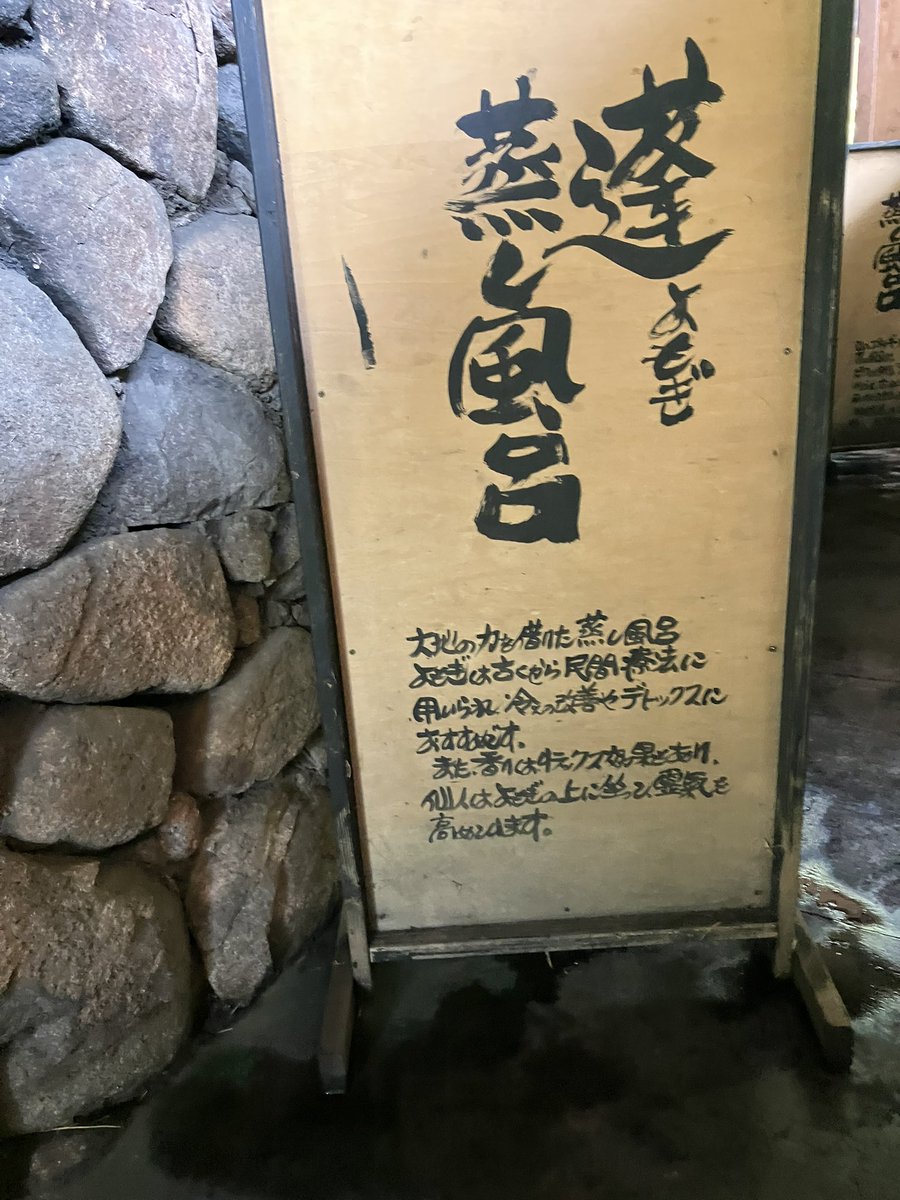 蓬
よもぎ
蒸し風呂
大地の力を借りた蒸し風呂
よもぎは古くから民間療法に
用いられ、冷えの改善やデトックスに
おすすめです。
また、香りはリラックス効果もあり、
仙人はよもぎの上に坐って、霊気を
高めています。
蒸し風呂